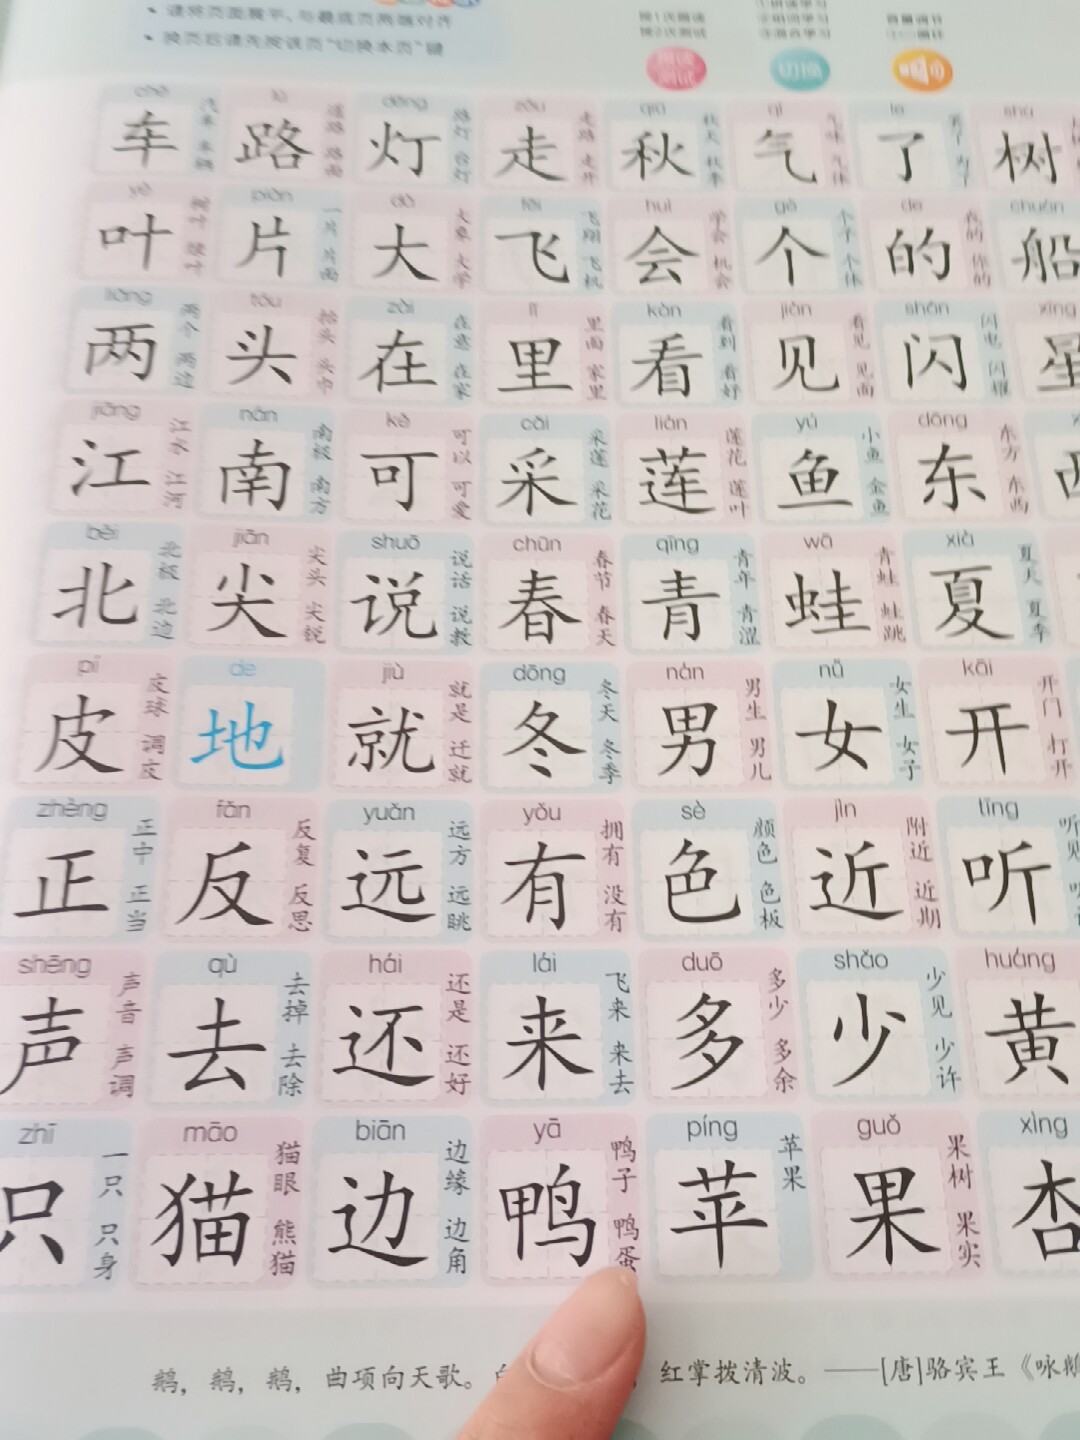 • 请将页面展平，与最底页两端对齐
• 换页后请先按该页“切换本页”键
切换
chē lù dēng zǒu qiū qì le shù
车 汽车 车辆 路 道路 路面 灯 路灯 台灯 走 走路 走开 秋 秋天 秋季 气 气味 气体 了 树
yè piàn dà fēi huì gè de chuán
叶 树叶 绿叶 片 一片 片面 大 大象 大学 飞 飞翔 飞机 会 学会 机会 个 个子 个体 的 我的 你的 船
liǎng tóu zài lǐ kàn jiàn shǎn xīng
两 两个 两边 头 抬头 头巾 在 在意 在家 里 里面 家里 看 看到 看好 见 看见 见面 闪 闪电 闪耀 星
jiāng nán kě cǎi lián yú dōng
江 江水 江河 南 南极 南方 可 可以 可爱 采 采莲 采花 莲 莲花 莲叶 鱼 小鱼 金鱼 东 东方 东西 西
běi jiān shuō chūn qīng wā xià
北 北极 北边 尖 尖头 尖锐 说 说话 说教 春 春节 春天 青 青年 青涩 蛙 青蛙 蛙跳 夏 夏天 夏季
pí de jiù dōng nán nǚ kāi
皮 皮球 调皮 地 就 就是 迁就 冬 冬天 冬季 男 男生 男儿 女 女生 女子 开 开门 打开
zhèng fǎn yuǎn yǒu sè jìn tīng
正 正中 正当 反 反复 反思 远 远方 远眺 有 拥有 没有 色 颜色 色板 近 附近 近期 听 听见
shēng qù hái lái duō shǎo huáng
声 声音 声调 去 去掉 去除 还 还是 还好 来 飞来 来去 多 多少 多余 少 少见 少许 黄
zhī māo biān yā píng guǒ xìng
只 一只 只身 猫 猫眼 熊猫 边 边缘 边角 鸭 鸭子 鸭蛋 苹 苹果 果 果树 果实 杏
鹅，鹅，鹅，曲项向天歌。 红掌拨清波。——[唐]骆宾王《咏